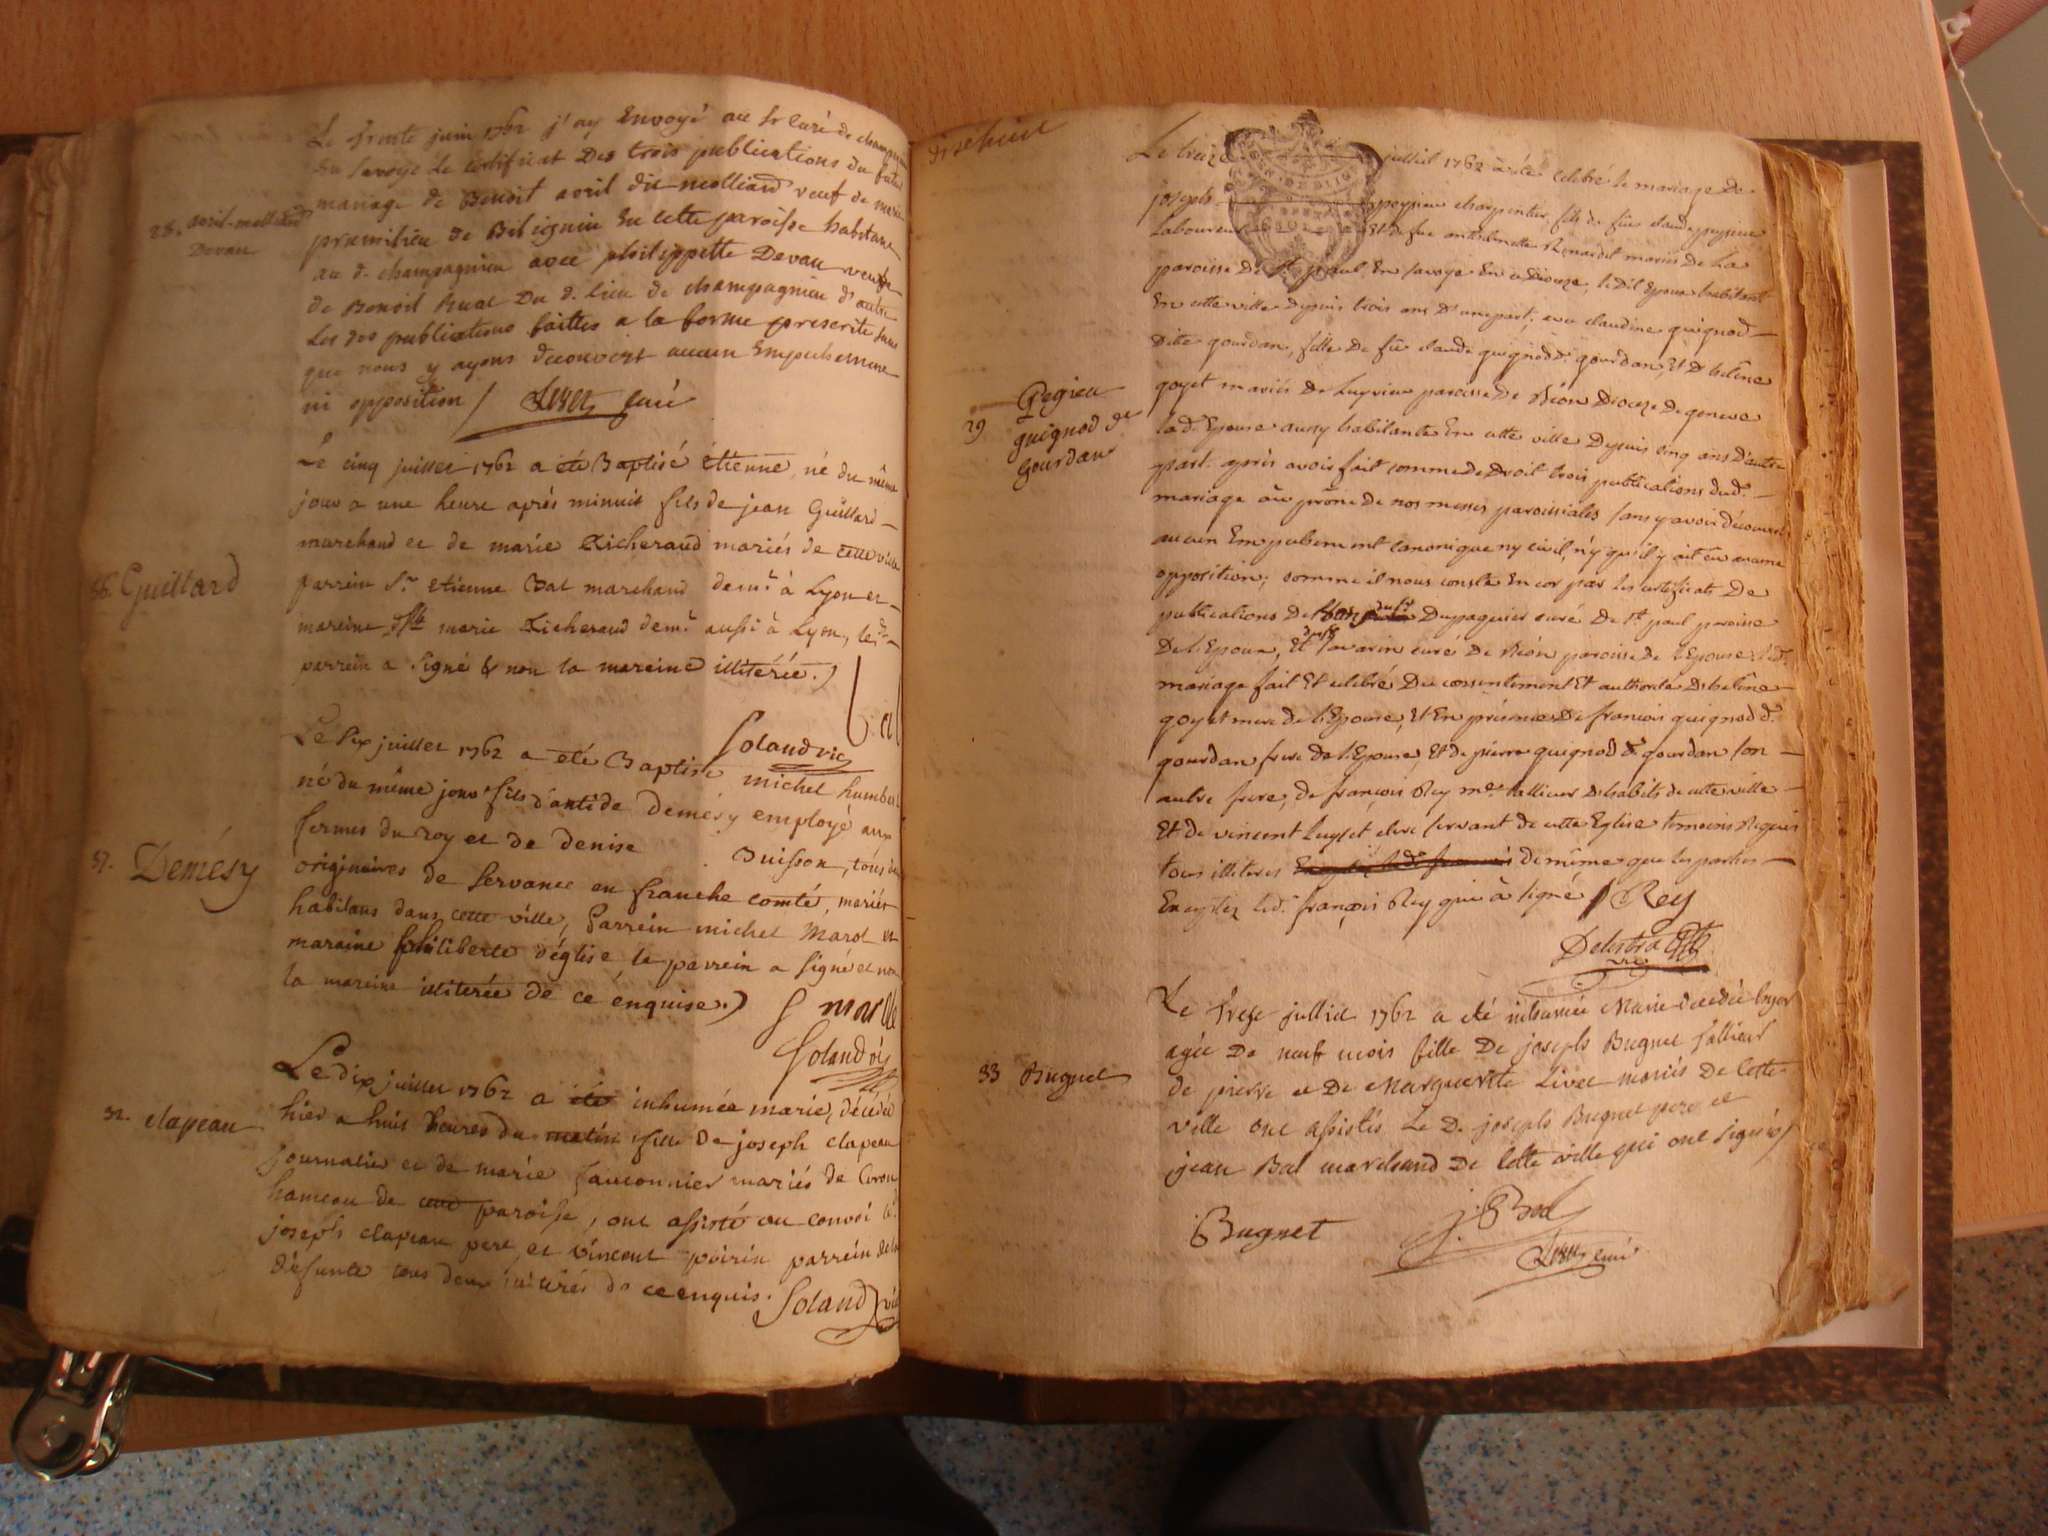 Le trente juin 1762 j'ay Envoyé au Sr Curé de
En Savoye Le Certificat Des trois publications du futur
mariage de Benoit avril dit molliard veuf de marie
premilieu de Bilignin En cette paroisse habitant
au d. champagnieu avec philippette Devau veuve
de Benoit Du d. lieu de champagnieu d'autre
Les des publications faittes a la forme prescrite sans
que nous y ayons decouvert aucun Empechement
ni opposition / curé
28. avril-molliard
Devau
Le cinq juillet 1762 a été Baptisé étienne, né du même
jour a une heure après minuit fils de jean Guillard
marchand et de marie Richerand mariés de cette ville
parrein Sr. etienne Bal marchand demt. à Lyon et
mareine Dlle marie Richerand demt. aussi à Lyon, le dt.
parrein a signé & non la mareine illitérée.)
56. Guillard
Bal
Goland vic
Le six juillet 1762 a été Baptisé michel humbert
né du même jour fils d'antide demésy employé aux
fermes du roy et de denise Buisson, tous
originaires de Servance en franche comté, mariés
habitans dans cette ville, Parrein michel marot et
maraine philiberte déglise le parrein a signé et non
la mareine illiterée de ce énquise.)
57. Demésy
Goland
Le dix juillet 1762 a été inhumée marie, décédée
hier a huit heures du matin fille de joseph clapeau
journalier et de marie fauconnier mariés de Coron
hameau de cette paroisse, ont assisté au convoi le d.
joseph clapeau pere, et vincent poirin parrein de la
défunte tous deux de ce enquis. Goland vic
32. clapeau
Le treize juillet 1762 a été celebré le mariage de
joseph peysieu charpentier fils de feu claude peysieu
Laboureur Et de feue Renardet mariés de La
paroisse de St paul En savoye En ce Dioceze, le dit Epoux habitant
En cette ville depuis trois ans d'une part; avec claudine guignod
Dite gourdan, fille De feu claude guignod dt. gourdan, Et D heléne
goyet mariés de paroisse de Béon Dioceze de geneve
lad. Epouse aussy habitante En cette ville Depuis cinq ans D'autre
part. après avoir fait comme de droit trois publications dud.
mariage au prône de nos messes paroissiales sans y avoir découvert
aucun Empechement canonique ny civil, n'y qu'il y ait eu aucune
opposition; comme il nous conste Encor par les certificats De
publications De Dupaquier curé De St paul paroisse
De L'Epoux, Et Savarin curé de Béon paroisse de L'Epouse; led.
mariage fait Et celebré Du consentement Et authorité D heléne
goyet mere de L'Epouse, Et En présence De francois guignod d.
gourdan frere De L'Epouse, Et de pierre guignod d. gourdan son
autre frere, de françois Rey me. tallieur D'habits de cette ville
Et de vincent clerc servant de cette Eglise temoins Requis
tous illiteres de même que les parties
Exceptez led. françois Rey qui à signé / Rey
29
guignod de
Gourdan
Le treze julliet 1762 a été inhumée Marie
agée De neuf mois fille De joseph Bugnet tallieur
de pierre et De Marguerite Livet mariés De Cette
ville ont assistés Le D. joseph Bugnet pere et
jean Bal marchand De Cette ville qui ont signés /
33 Bugnet
Bugnet j. Bal
curé